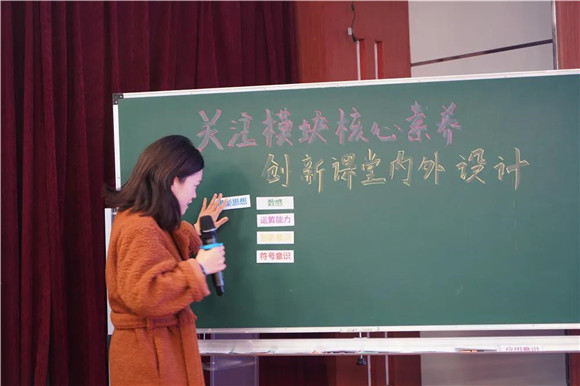 关注模块核心素养
创新课堂内外设计
思想
数感
运算能力
符号意识
应用意识